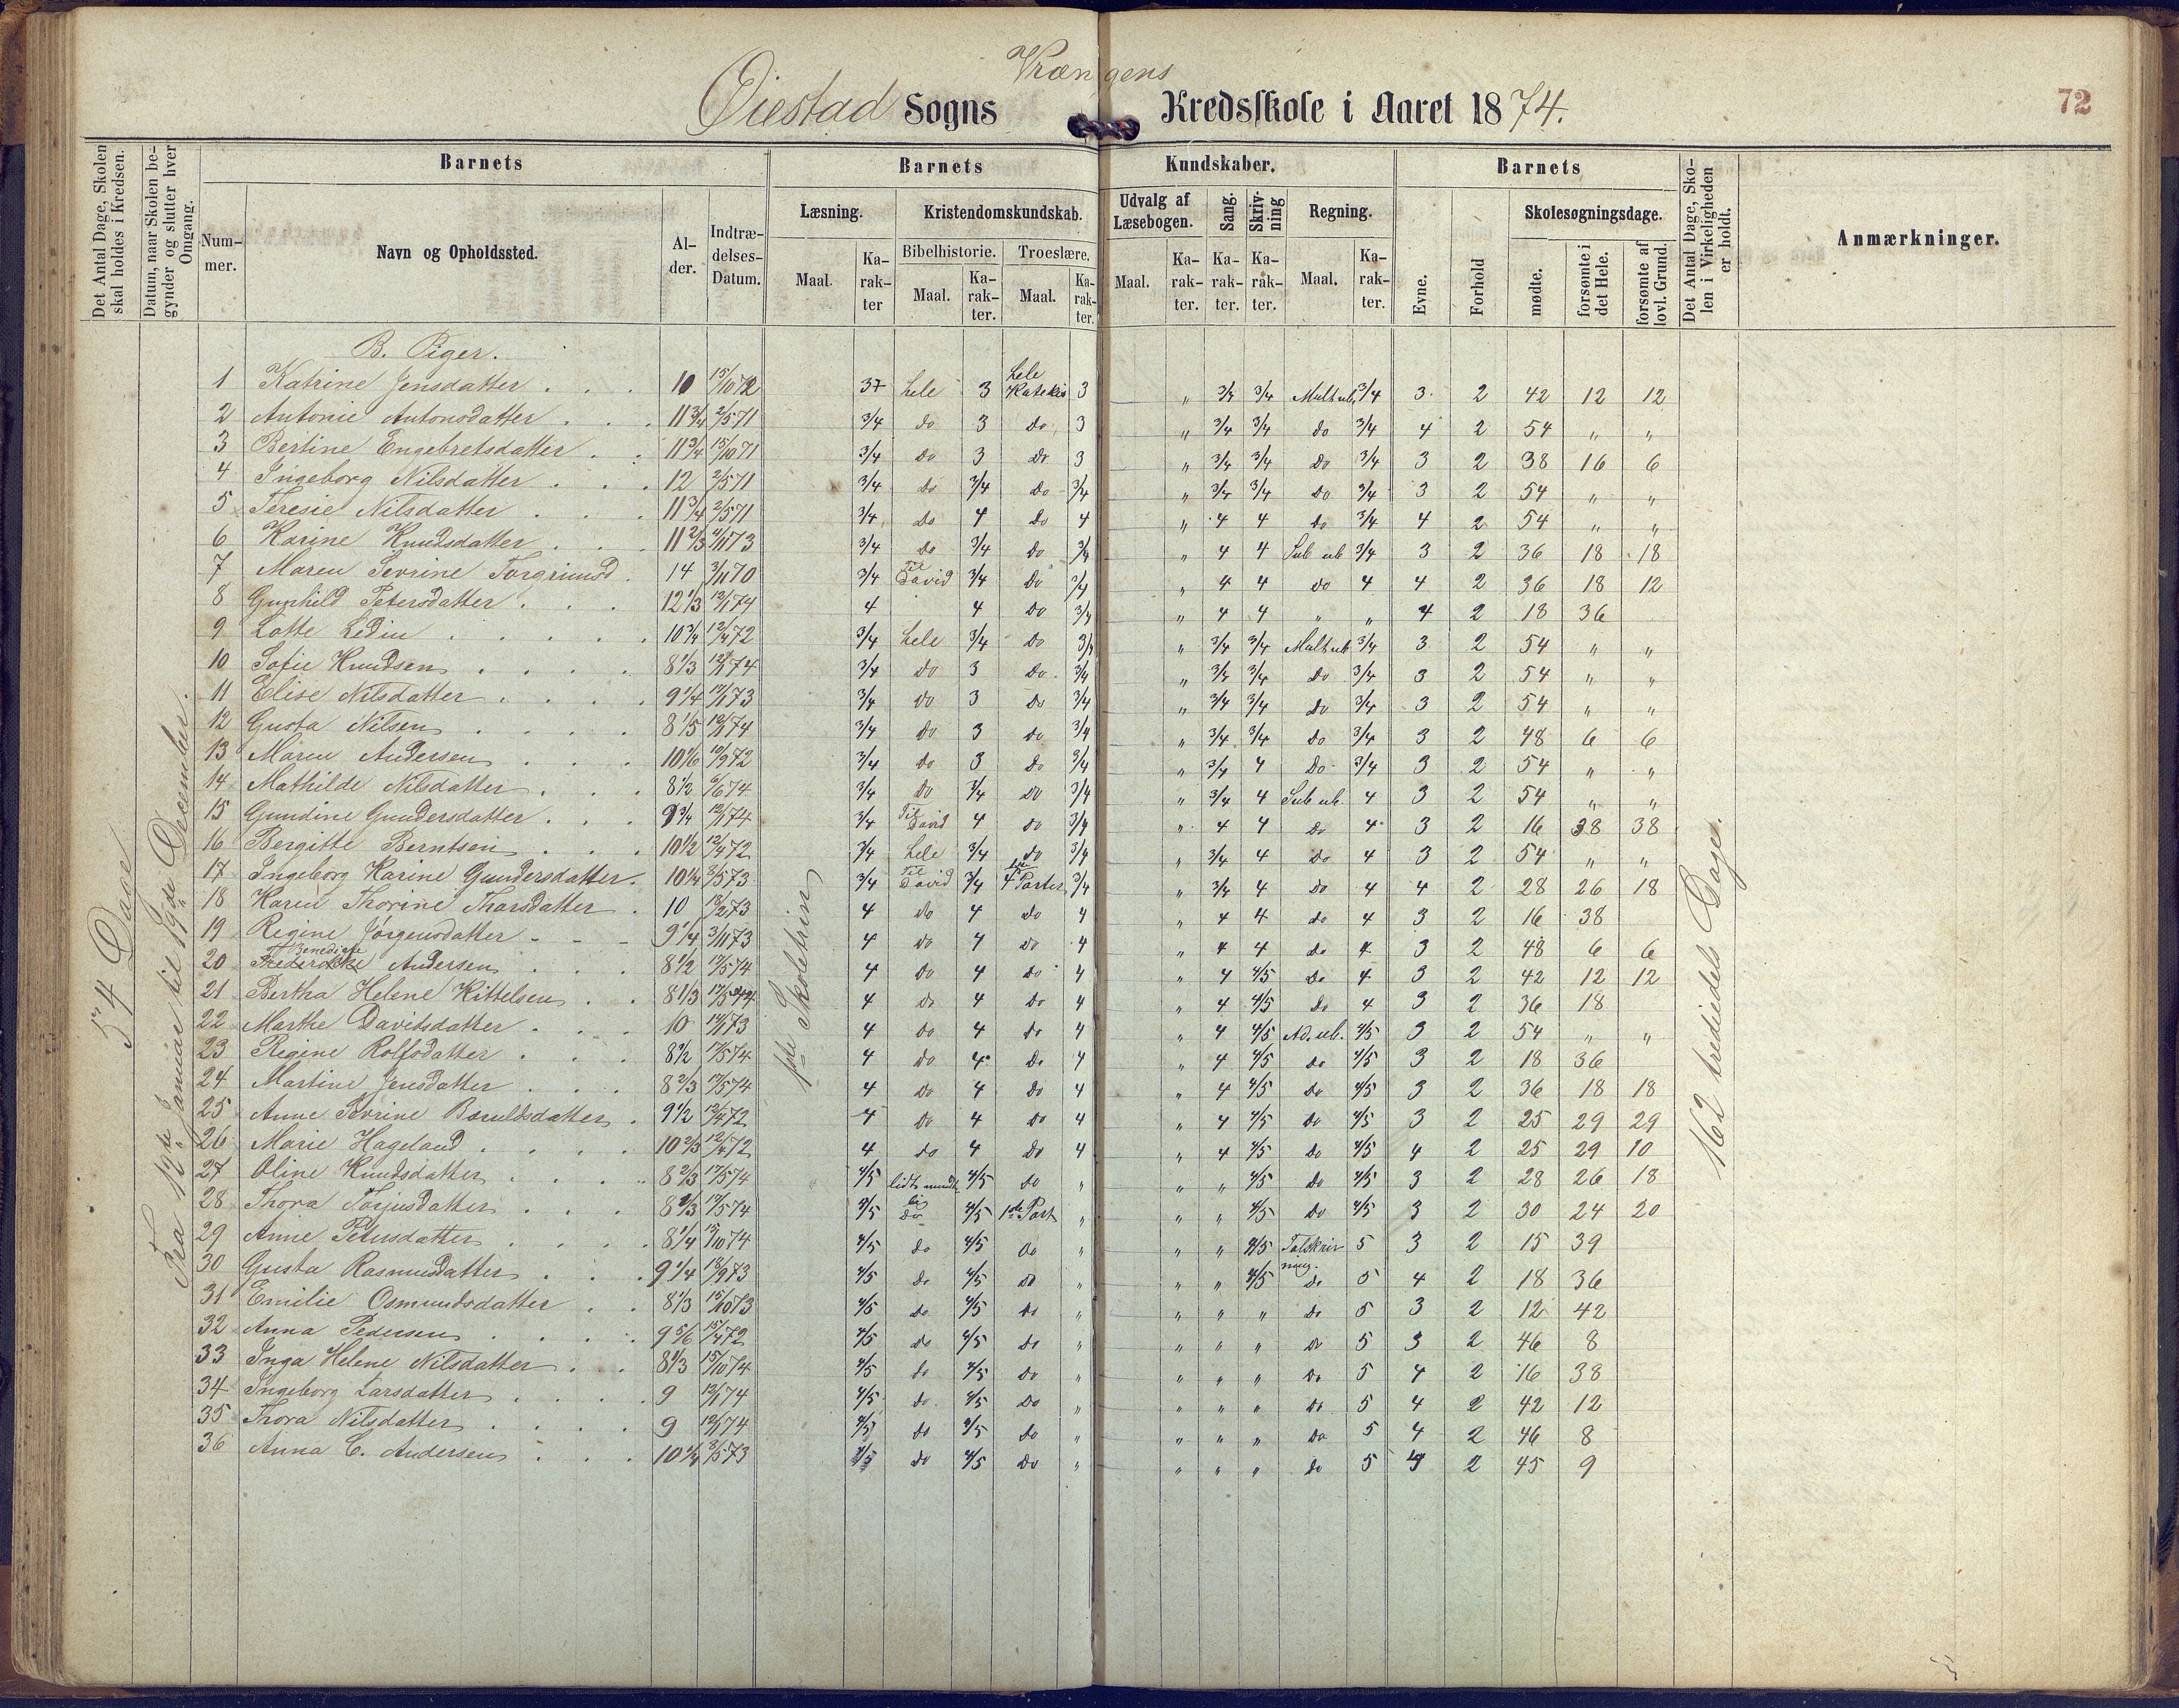 Vrængens
Øiestad Sogns Kredsskole i Aaret 1874.
72
Det Antal Dage, Skolen skal holdes i Kredsen.
Datum, naar Skolen begynder og slutter hver Omgang.
Barnets
Nummer.
Navn og Opholdssted.
Alder.
Indtrædelses-Datum.
Barnets Kundskaber.
Læsning.
Maal.
Karakter
Kristendomskundskab.
Bibelhistorie.
Maal.
Karakter.
Troeslære.
Maal.
Karakter.
Udvalg af Læsebogen.
Maal.
Karakter.
Sang.
Karakter.
Skrivning
Karakter.
Regning.
Maal.
Karakter.
Barnets
Evne.
Forhold
Skolesøgningsdage.
mødte.
forsømte i det Hele.
forsømte af lovl. Grund.
Det Antal Dage, Skolen i Virkeligheden er holdt.
Anmærkninger.
54 Dage
Fra 12te Januar til 19de December.
B. Piger.
1 Katrine Jensdatter 10 15/10 72 hele 3 hele Katekis 3 " 3/4 3/4 Mult ub. 3/4 3 2 42 12 12
2 Antonie Antonsdatter 11 3/4 2/5 71 3/4 do 3 do 3 " 3/4 3/4 do 3/4 4 2 54 " "
3 Bertine Engebretsdatter 11 3/4 15/10 71 3/4 do 3 do 3 " 3/4 3/4 do 3/4 3 2 38 16 6
4 Ingeborg Nilsdatter 12 2/5 71 3/4 do 3/4 do 3/4 " 3/4 3/4 do 3/4 3 2 54 " "
5 Teresie Nilsdatter 11 3/4 2/5 71 3/4 do 4 do 4 " 4 4 do 3/4 4 2 54 " "
6 Karine Knudsdatter 11 2/3 73 3/4 do 3/4 do 3/4 " 4 4 Sub ub 3/4 3 2 36 18 18
7 Maren Sevrine Torgrimsd. 14 3/11 70 3/4 Til David 3/4 do 3/4 " 4 4 do 4 4 2 36 18 12
8 Gunhild Petersdatter 12 1/3 12/1 74 4 4 do 3/4 " 4 4 " " 4 2 18 36
9 Lotte Ledin 10 3/4 12/4 72 3/4 hele 3/4 do 3/4 " 3/4 3/4 Mult ub 3/4 3 2 54 " "
10 Sofie Knudsen 8 1/3 12/1 74 3/4 do 3 do 3/4 " 3/4 3/4 do 3/4 3 2 54 " "
11 Elise Nilsdatter 9 1/4 73 3/4 do 3 do 3/4 " 3/4 3/4 do 3/4 3 2 54 " "
12 Gusta Nilsen 8 1/5 12/1 74 3/4 do 3 do 3/4 " 3/4 3/4 do 3/4 3 2 48 6 6
13 Maren Andersen 10 1/6 10/9 72 3/4 do 3 do 3/4 " 3/4 4 do 3/4 3 2 54 " "
14 Mathilde Nilsdatter 8 1/2 6/6 74 3/4 do 3/4 do 3/4 " 3/4 4 Sub ub. 4 3 2 54 " "
15 Gundine Gundersdatter 9 3/4 12/1 74 3/4 Til David 4 do 3/4 " 4 4 do 4 3 2 16 38 38
16 Bergitte Berntsen 10 1/2 12/4 72 3/4 hele 3/4 do 3/4 " 3/4 4 do 4 3 2 54 " "
17 Ingeborg Karine Gundersdatter 10 1/4 2/5 73 3/4 Til David 3/4 4 Parter 3/4 " 3/4 4 do 4 4 2 28 26 18
18 Karen Thorine Thorsdatter 10 18/2 73 4 do 4 do 4 " 4 4 do 4 3 2 16 38
19 Regine Jørgensdatter 9 1/4 3/11 73 4 do 4 do 4 " 4 4 do 4 3 2 48 6 6
20 Benedicte Andersen 8 1/2 17/5 74 4 do 4 do 4 " 4 4/5 do 4 3 2 42 12 12
21 Bertha Helene Kittelsen 8 1/3 17/5 74 4 do 4 do 4 " 4 4/5 do 4 3 2 36 18
22 Marthe Davidsdatter 10 73 4 do 4 do 4 " 4 4/5 Ad. ub. 4/5 3 2 54 " "
23 Regine Rolfsdatter 8 1/2 17/5 74 4 do 4 do 4 " 4 4/5 do 4/5 3 2 18 36
24 Martine Jensdatter 8 2/3 17/5 74 4 do 4 do 4 " 4 4/5 do 4/5 3 2 36 18 18
25 Anne Sevrine 9 1/2 12/4 72 4 do 4 do 4 " 4 4/5 do 4/5 3 2 25 29 29
26 Marie Hageland 10 2/3 12/4 72 4 do 4 do 4 " 4 4/5 do 4/5 4 2 25 29 10
27 Oline Knudsdatter 8 2/3 17/5 74 4/5 lidt mundt lig 4/5 do " " " 4/5 do 4/5 3 2 28 26 18
28 Thora Torjusdatter 8 2/3 17/5 74 4/5 do 4/5 1ste Part " " " 4/5 do 4/5 3 2 30 24 20
29 Anne Petersdatter 8 1/4 15/10 74 4/5 do 4/5 do " " " 4/5 Talskrivning. 5 3 2 15 39
30 Gusta Rasmusdatter 9 1/4 18/9 73 4/5 do 4/5 do " " " 4/5 do 5 4 2 18 36
31 Emilie Osmundsdatter 8 1/3 15/10 73 4/5 do 4/5 do " " " " do 5 3 2 12 42
32 Anna Pedersen 9 5/6 15/4 72 4/5 do 4/5 do " " " " do 5 3 2 46 8
33 Inga Helene Nilsdatter 8 1/3 15/10 74 4/5 do 4/5 do " " " " do 5 4 2 16 38
34 Ingeborg Larsdatter 9 12/1 74 4/5 do 4/5 do " " " " do 5 4 2 42 12
35 Thora Nilsdatter 9 12/1 74 4/5 do 4/5 do " " " " do 5 4 2 46 8
36 Anna C. Andersen 10 1/4 2/5 73 4/5 do 4/5 do " " " " do 5 4 2 45 9
Skoletrin
162 trediedels Dage.